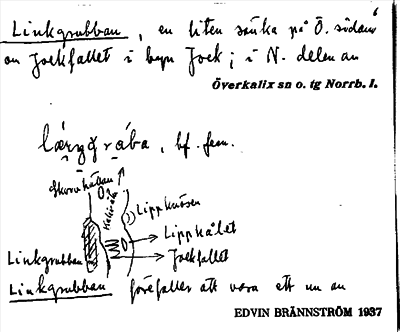 6
Linkgrubban, en liten sänka på Ö. sidan
om Jockfallet i byn Jock; i N. delen av
Överkalix sn o. tg Norrb. l.
bf. fem.
Lippknösen
Lippkålet
Linkgrubban
Jockfallet
Linkgrubban förefaller att vara ett nu an
EDVIN BRÄNNSTRÖM 1937